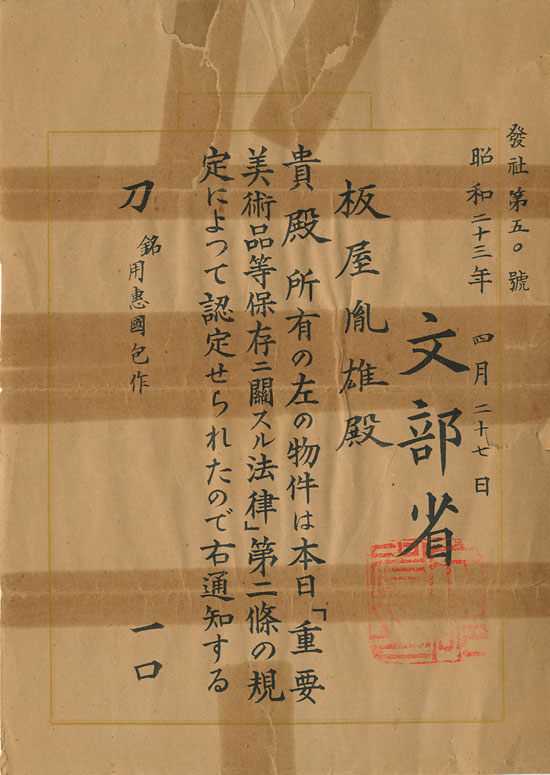 發社第五〇號
昭和二十三年四月二十七日
文部省
板屋胤雄殿
貴殿所有の左の物件は本日「重要
美術品等保存ニ關スル法律」第二條の規
定によつて認定せられたので右通知する
刀 銘用惠國包作 一口